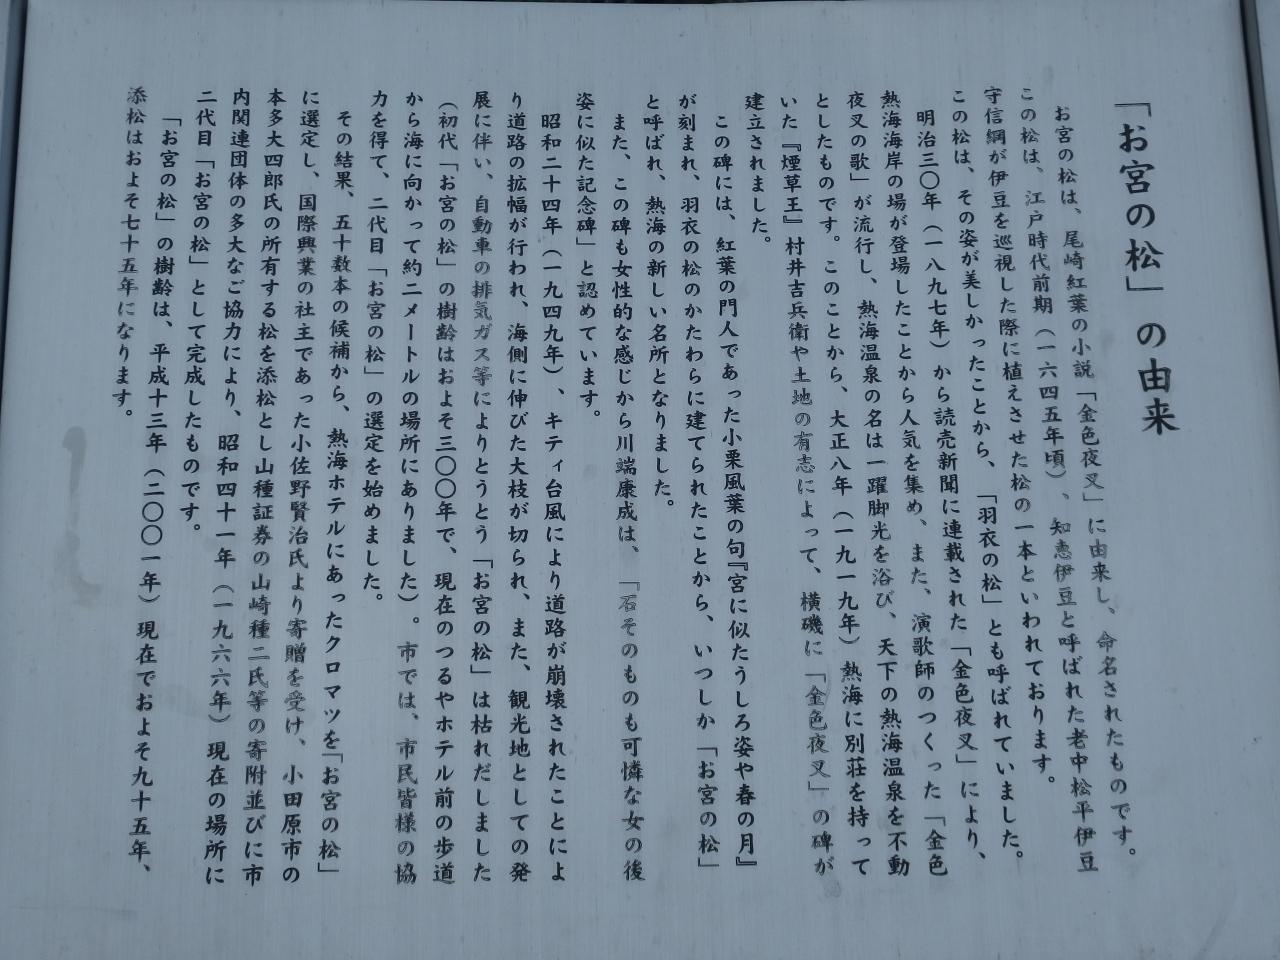 「お宮の松」の由来
お宮の松は、尾崎紅葉の小説「金色夜叉」に由来し、命名されたものです。
この松は、江戸時代前期（一六四五年頃）、知恵伊豆と呼ばれた老中松平伊豆
守信綱が伊豆を巡視した際に植えさせた松の一本といわれております。
この松は、その姿が美しかったことから、「羽衣の松」とも呼ばれていました。
明治三〇年（一八九七年）から読売新聞に連載された「金色夜叉」により、
熱海海岸の場が登場したことから人気を集め、また、演歌師のつくった「金色
夜叉の歌」が流行し、熱海温泉の名は一躍脚光を浴び、天下の熱海温泉を不動
としたものです。このことから、大正八年（一九一九年）熱海に別荘を持って
いた『煙草王』村井吉兵衛や土地の有志によって、横磯に「金色夜叉」の碑が
建立されました。
この碑には、紅葉の門人であった小栗風葉の句『宮に似たうしろ姿や春の月』
が刻まれ、羽衣の松のかたわらに建てられたことから、いつしか「お宮の松」
と呼ばれ、熱海の新しい名所となりました。
また、この碑も女性的な感じから川端康成は、『石そのものも可憐な女の後
姿に似た記念碑」と認めています。
昭和二十四年（一九四九年）、キティ台風により道路が崩壊されたことによ
り道路の拡幅が行われ、海側に伸びた大枝が切られ、また、観光地としての発
展に伴い、自動車の排気ガス等によりとうとう「お宮の松」は枯れだしました
（初代「お宮の松」の樹齢はおよそ三〇〇年で、現在のつるやホテル前の歩道
から海に向かって約二メートルの場所にありました）。市では、市民皆様の協
力を得て、二代目「お宮の松」の選定を始めました。
その結果、五十数本の候補から、熱海ホテルにあったクロマツを「お宮の松」
に選定し、国際興業の社主であった小佐野賢治氏より寄贈を受け、小田原市の
本多大四郎氏の所有する松を添松とし山種証券の山崎種二氏等の寄附並びに市
内関連団体の多大なご協力により、昭和四十一年（一九六六年）現在の場所に
二代目「お宮の松」として完成したものです。
「お宮の松」の樹齢は、平成十三年（二〇〇一年）現在でおよそ九十五年、
添松はおよそ七十五年になります。